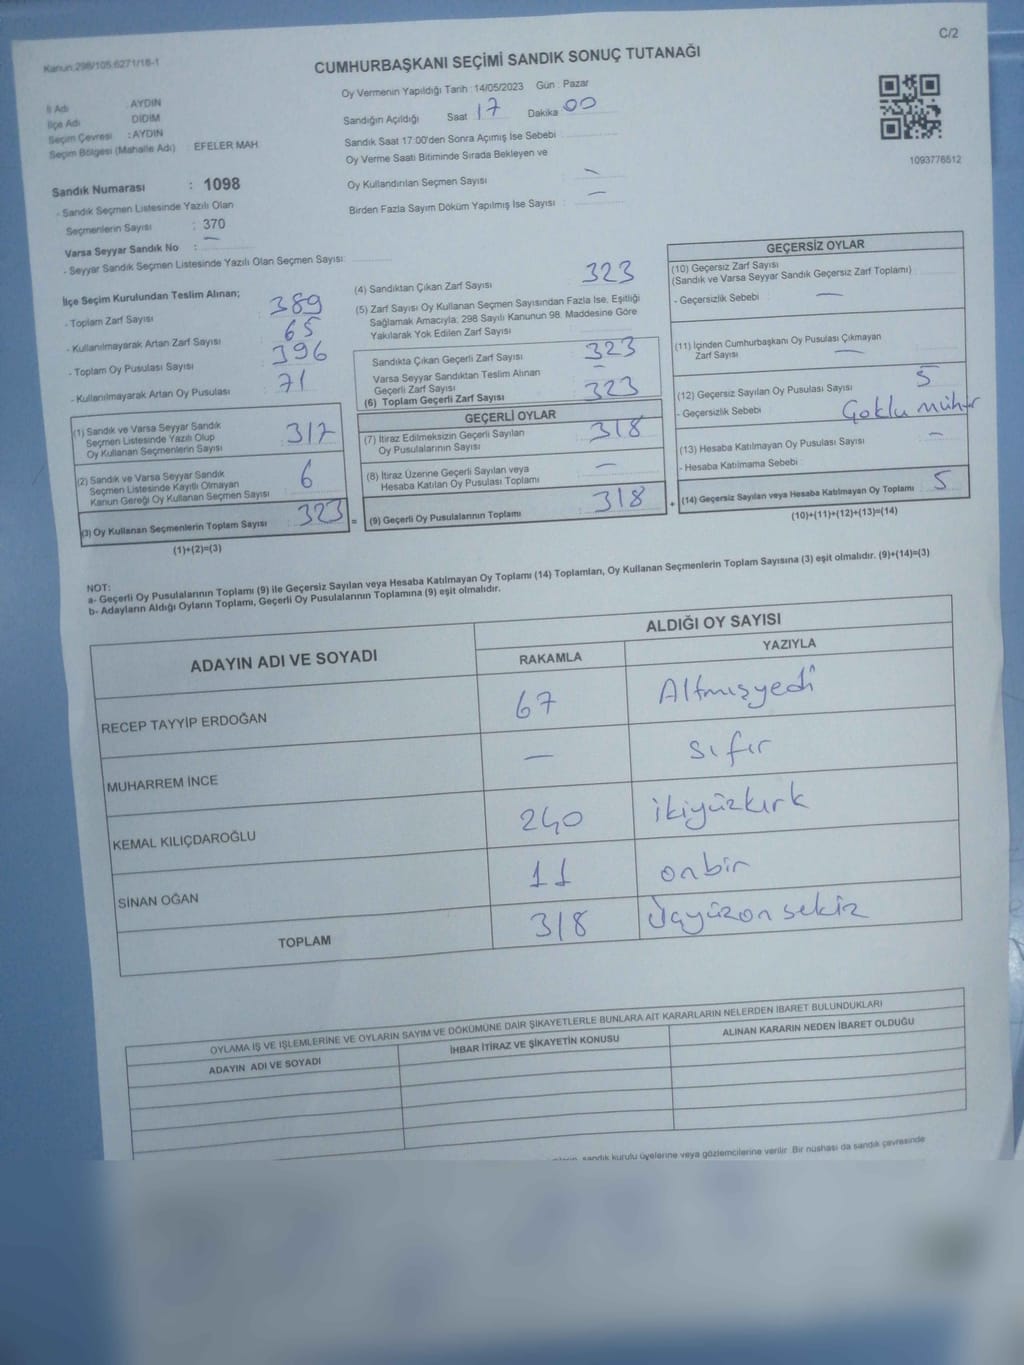 C/2
Kanun:298/105,6271/18-1
CUMHURBAŞKANI SEÇİMİ SANDIK SONUÇ TUTANAĞI
İl Adı : AYDIN
İlçe Adı DİDİM
Seçim Çevresi : AYDIN
Seçim Bölgesi (Mahalle Adı) : EFELER MAH.
Oy Vermenin Yapıldığı Tarih : 14/05/2023 Gün : Pazar
Sandığın Açıldığı Saat 17 Dakika 00
Sandık Saat 17:00'den Sonra Açımış İse Sebebi
Oy Verme Saati Bitiminde Sırada Bekleyen ve
Oy Kullandırılan Seçmen Sayısı : —
Birden Fazla Sayım Döküm Yapılmış İse Sayısı : —
1093776512
Sandık Numarası : 1098
- Sandık Seçmen Listesinde Yazılı Olan
Seçmenlerin Sayısı : 370
Varsa Seyyar Sandık No : —
- Seyyar Sandık Seçmen Listesinde Yazılı Olan Seçmen Sayısı:
İlçe Seçim Kurulundan Teslim Alınan;
- Toplam Zarf Sayısı : 389
- Kullanılmayarak Artan Zarf Sayısı : 65
- Toplam Oy Pusulası Sayısı : 396
- Kullanılmayarak Artan Oy Pusulası : 71
(1) Sandık ve Varsa Seyyar Sandık
Seçmen Listesinde Yazılı Olup
Oy Kullanan Seçmenlerin Sayısı : 317
(2) Sandık ve Varsa Seyyar Sandık
Seçmen Listesinde Kayıtlı Olmayan
Kanun Gereği Oy Kullanan Seçmen Sayısı : 6
(3) Oy Kullanan Seçmenlerin Toplam Sayısı : 323 =
(1)+(2)=(3)
(4) Sandıktan Çıkan Zarf Sayısı : 323
(5) Zarf Sayısı Oy Kullanan Seçmen Sayısından Fazla İse, Eşitliği
Sağlamak Amacıyla, 298 Sayılı Kanunun 98. Maddesine Göre
Yakılarak Yok Edilen Zarf Sayısı :
Sandıkta Çıkan Geçerli Zarf Sayısı : 323
Varsa Seyyar Sandıktan Teslim Alınan
Geçerli Zarf Sayısı : —
(6) Toplam Geçerli Zarf Sayısı : 323
GEÇERLİ OYLAR
(7) İtiraz Edilmeksizin Geçerli Sayılan
Oy Pusulalarının Sayısı : 318
(8) İtiraz Üzerine Geçerli Sayılan veya
Hesaba Katılan Oy Pusulası Toplamı : —
(9) Geçerli Oy Pusulalarının Toplamı : 318 +
GEÇERSİZ OYLAR
(10) Geçersiz Zarf Sayısı
(Sandık ve Varsa Seyyar Sandık Geçersiz Zarf Toplamı) :
- Geçersizlik Sebebi : —
(11) İçinden Cumhurbaşkanı Oy Pusulası Çıkmayan
Zarf Sayısı : —
(12) Geçersiz Sayılan Oy Pusulası Sayısı : 5
- Geçersizlik Sebebi : Çoklu mühür
(13) Hesaba Katılmayan Oy Pusulası Sayısı : —
- Hesaba Katılmama Sebebi :
(14) Geçersiz Sayılan veya Hesaba Katılmayan Oy Toplamı : 5
(10)+(11)+(12)+(13)=(14)
NOT:
a- Geçerli Oy Pusulalarının Toplamı (9) ile Geçersiz Sayılan veya Hesaba Katılmayan Oy Toplamı (14) Toplamları, Oy Kullanan Seçmenlerin Toplam Sayısına (3) eşit olmalıdır. (9)+(14)=(3)
b- Adayların Aldığı Oyların Toplamı, Geçerli Oy Pusulalarının Toplamına (9) eşit olmalıdır.
ADAYIN ADI VE SOYADI
ALDIĞI OY SAYISI
RAKAMLA YAZIYLA
RECEP TAYYİP ERDOĞAN 67 Altmışyedi
MUHARREM İNCE — sıfır
KEMAL KILIÇDAROĞLU 240 ikiyüzkırk
SİNAN OĞAN 11 onbir
TOPLAM 318 Üçyüzonsekiz
OYLAMA İŞ VE İŞLEMLERİNE VE OYLARIN SAYIM VE DÖKÜMÜNE DAİR ŞİKAYETLERLE BUNLARA AİT KARARLARIN NELERDEN İBARET BULUNDUKLARI
ADAYIN ADI VE SOYADI İHBAR İTİRAZ VE ŞİKAYETİN KONUSU ALINAN KARARIN NEDEN İBARET OLDUĞU
sandık kurulu üyelerine veya gözlemcilerine verilir. Bir nüshası da sandık çevresinde